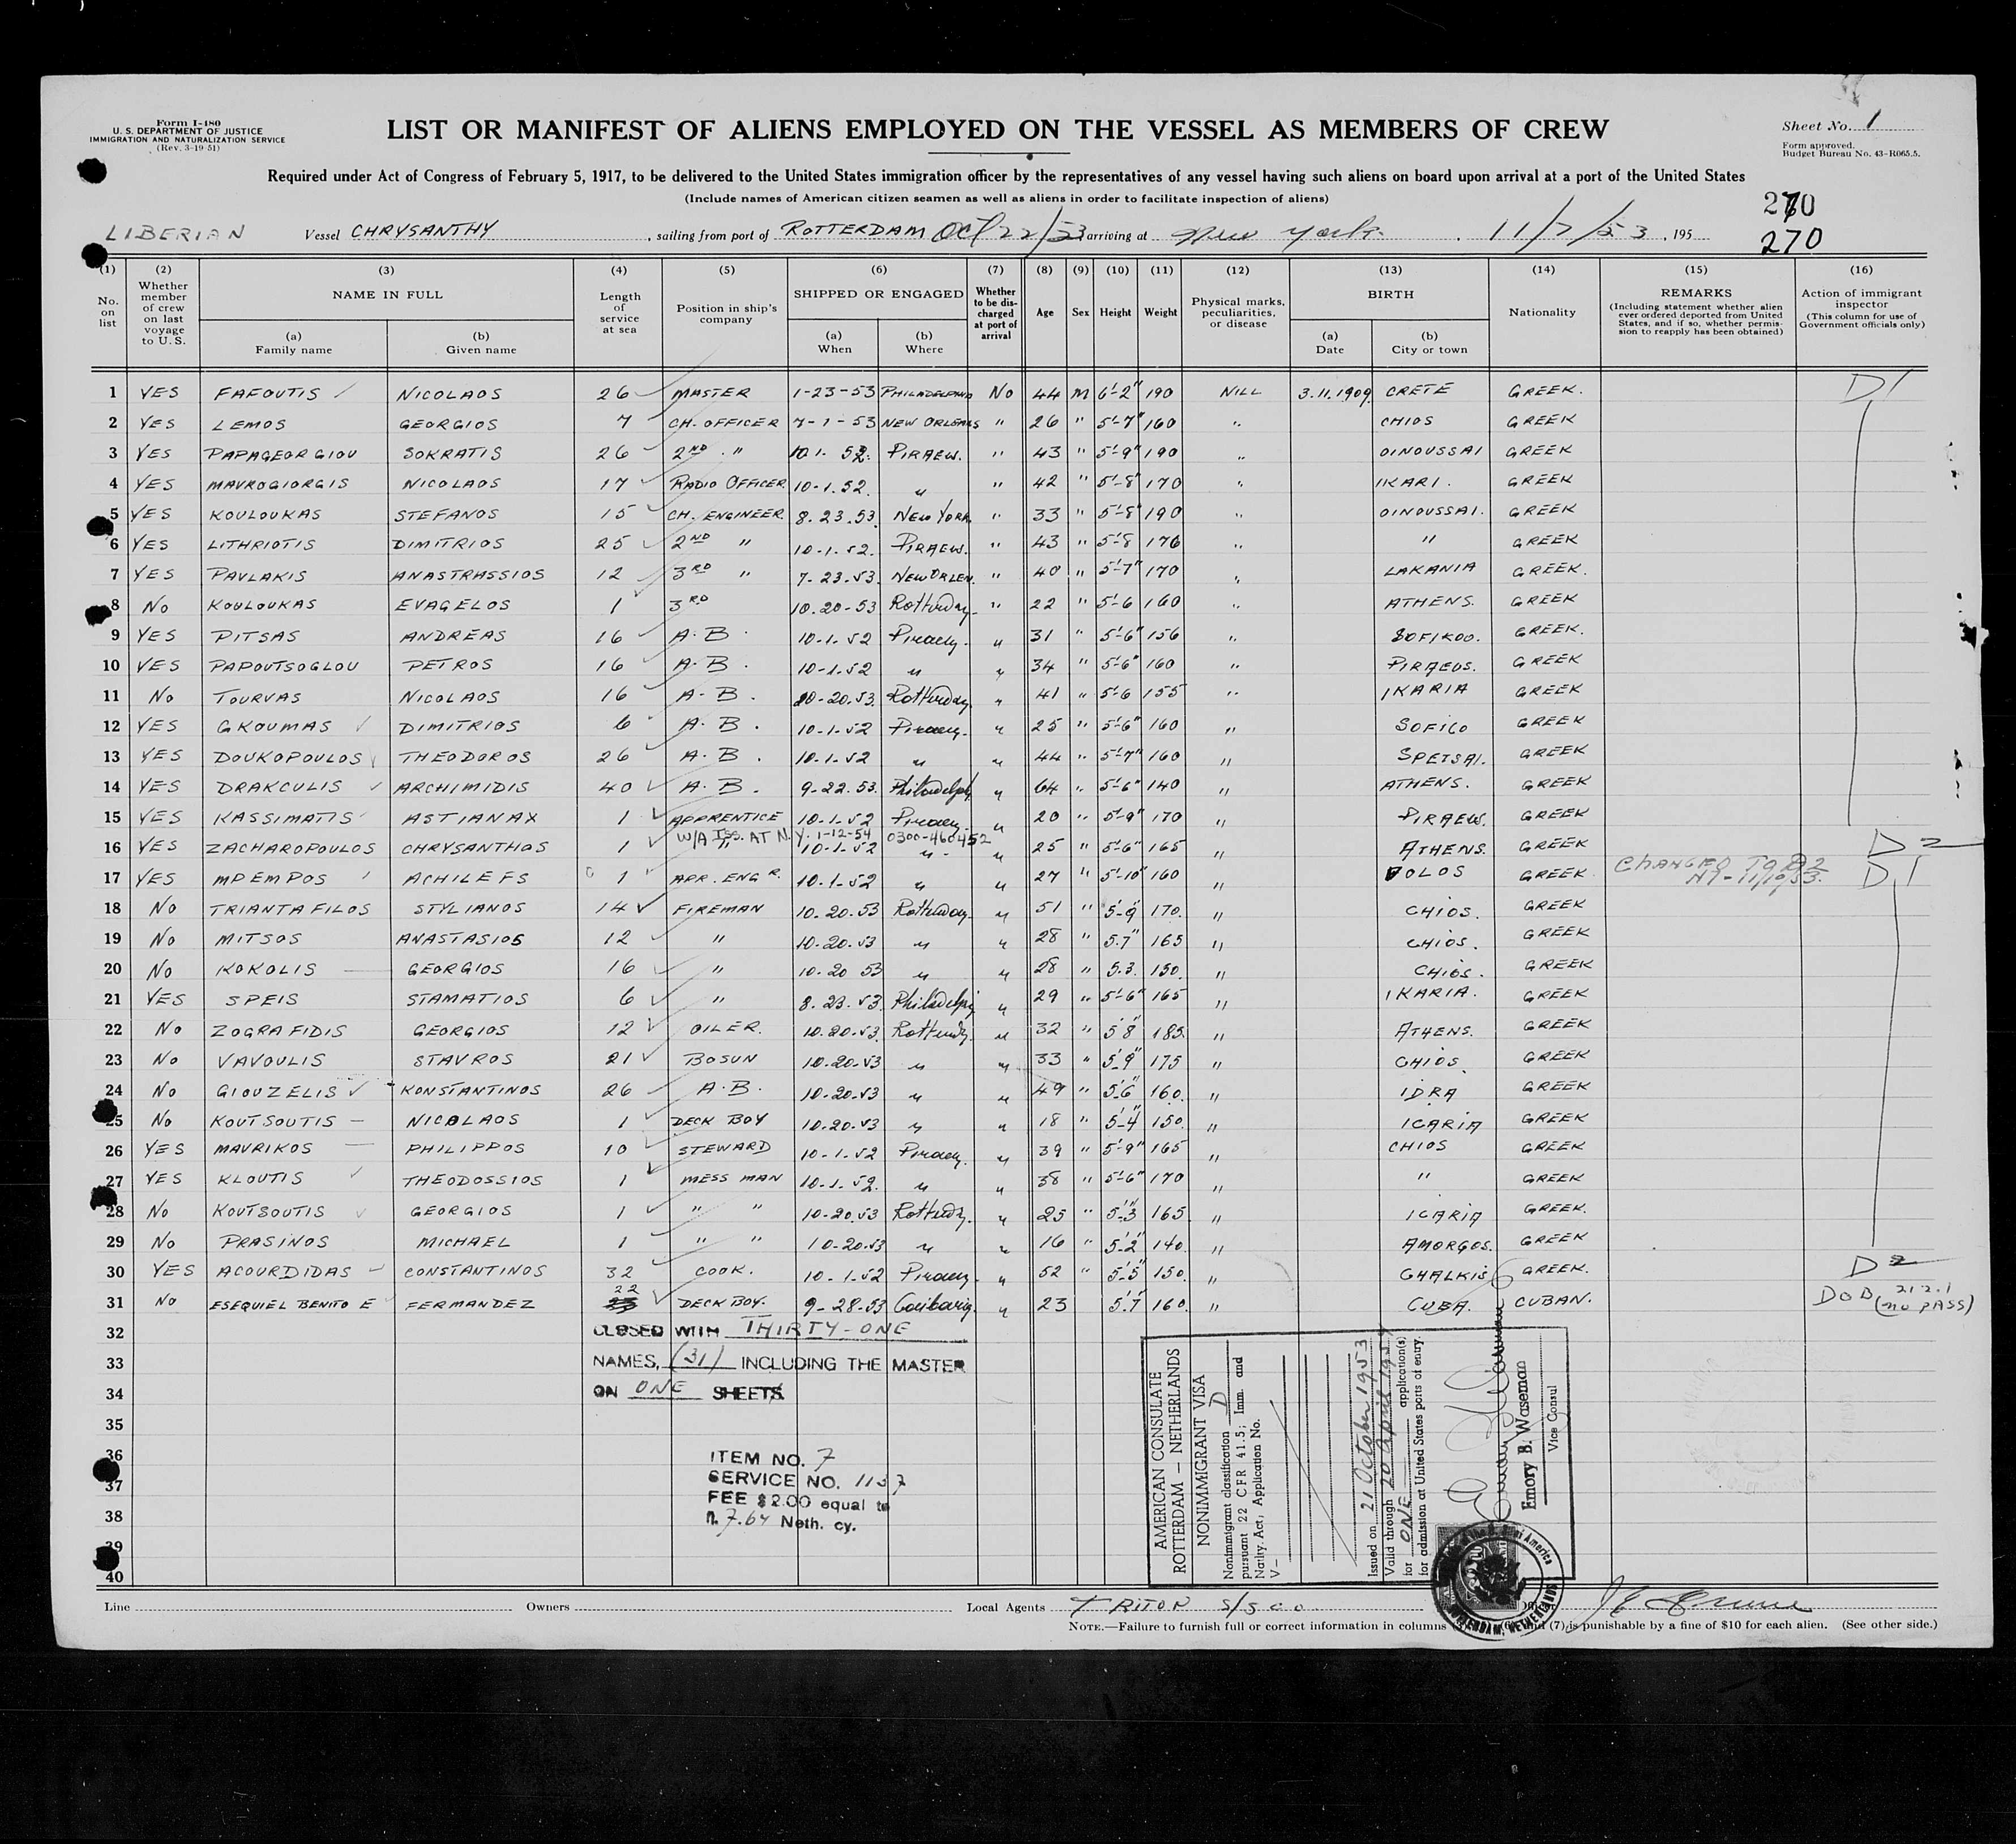 Form I-480
U. S. DEPARTMENT OF JUSTICE
IMMIGRATION AND NATURALIZATION SERVICE
(Rev. 3-19-51)
LIST OR MANIFEST OF ALIENS EMPLOYED ON THE VESSEL AS MEMBERS OF CREW
Sheet No. 1
Form approved.
Budget Bureau No. 43-R065.5.
Required under Act of Congress of February 5, 1917, to be delivered to the United States immigration officer by the representatives of any vessel having such aliens on board upon arrival at a port of the United States
(Include names of American citizen seamen as well as aliens in order to facilitate inspection of aliens)
270
LIBERIAN Vessel CHRYSANTHY, sailing from port of ROTTERDAM Oct 22/53 arriving at New York. 11/7/53, 195
270
(1) (2) (3) (4) (5) (6) (7) (8) (9) (10) (11) (12) (13) (14) (15) (16)
No. on list Whether member of crew on last voyage to U.S. NAME IN FULL (a) Family name (b) Given name Length of service at sea Position in ship's company SHIPPED OR ENGAGED (a) When (b) Where Whether to be discharged at port of arrival Age Sex Height Weight Physical marks, peculiarities, or disease BIRTH (a) Date (b) City or town Nationality REMARKS (Including statement whether alien ever ordered deported from United States, and if so, whether permission to reapply has been obtained) Action of immigrant inspector (This column for use of Government officials only)
1 YES FAFOUTIS NICOLAOS 26 MASTER 1-23-53 PHILADELPHIA No 44 M 6'-2" 190 NILL 3.11.1909 CRETE GREEK. D1
2 YES LEMOS GEORGIOS 7 CH. OFFICER 7-1-53 NEW ORLEANS " 26 " 5'-7" 160 " CHIOS GREEK
3 YES PAPAGEORGIOU SOKRATIS 26 2ND " 10.1.52. PIRAEW. " 43 " 5'-9" 190 " OINOUSSAI GREEK
4 YES MAVROGIORGIS NICOLAOS 17 RADIO OFFICER 10-1.52. " " 42 " 5'-8" 170 " IKARI. GREEK
5 YES KOULOUKAS STEFANOS 15 CH. ENGINEER 8.23.53. NEW YORK. " 33 " 5'-8" 190 " OINOUSSAI. GREEK
6 YES LITHRIOTIS DIMITRIOS 25 2ND " 10-1.52. PIRAEW. " 43 " 5'-8 176 " " GREEK
7 YES PAVLAKIS ANASTRASSIOS 12 3RD " 7-23.53. NEW ORLEN. " 40 " 5'-7" 170 " LAKANIA GREEK.
8 No KOULOUKAS EVAGELOS 1 3RD 10.20-53 Rotterdam. " 22 " 5'-6 160 " ATHENS. GREEK
9 YES PITSAS ANDREAS 16 A.B. 10-1.52 Piraeu. " 31 " 5'-6" 156 " SOFIKOO. GREEK.
10 YES PAPOUTSOGLOU PETROS 16 A.B. 10-1.52 " " 34 " 5'-6" 160 " PIRAEUS. GREEK
11 No TOURVAS NICOLAOS 16 A-B. 10-20.53. Rotterdam. " 41 " 5'-6 155 " IKARIA GREEK
12 YES GKOUMAS DIMITRIOS 6 A.B. 10-1-52 Piraeu. " 25 " 5'-6" 160 " SOFICO GREEK
13 YES DOUKOPOULOS THEODOROS 26 A.B. 10-1-52 " " 44 " 5'-7" 160 " SPETSAI. GREEK
14 YES DRAKCULIS ARCHIMIDIS 40 A.B. 9-22.53. Philadelph. " 64 " 5'-6" 140 " ATHENS. GREEK
15 YES KASSIMATIS ASTIANAX 1 APPRENTICE 10-1.52 Piraeu. " 20 " 5'-9" 170 " PIRAEW. GREEK
W/A ISS. AT N.Y. 1-12-54 0300-460452
16 YES ZACHAROPOULOS CHRYSANTHOS 1 " 10-1-52 " " 25 " 5'-6" 165 " ATHENS. GREEK D2
17 YES MPEMPOS ACHILEFS 1 APR. ENGR. 10.1-52 " " 27 " 5'-10" 160 " VOLOS GREEK CHANGED TO D2 NY-11/10/53. D1
18 No TRIANTAFILOS STYLIANOS 14 FIREMAN 10-20.53 Rotterdam. " 51 " 5'-9" 170. " CHIOS. GREEK
19 No MITSOS ANASTASIOS 12 " 10.20.53 " " 28 " 5.7" 165 " CHIOS. GREEK
20 No KOKOLIS GEORGIOS 16 " 10-20 53 " " 28 " 5.3. 150. " CHIOS. GREEK
21 YES SPEIS STAMATIOS 6 " 8.23.53. Philadelphi " 29 " 5'-6" 165 " IKARIA. GREEK
22 No ZOGRAFIDIS GEORGIOS 12 OILER. 10.20.53. Rotterdm. " 32 " 5'8" 185. " ATHENS. GREEK
23 No VAVOULIS STAVROS 21 BOSUN 10-20-53 " " 33 " 5'-9" 175 " CHIOS. GREEK
24 No GIOUZELIS KONSTANTINOS 26 A.B. 10-20.53 " " 49 " 5'-6" 160. " IDRA GREEK
25 No KOUTSOUTIS NICOLAOS 1 DECK BOY 10.20.53 " " 18 " 5'-4" 150. " ICARIA GREEK
26 YES MAVRIKOS PHILIPPOS 10 STEWARD 10-1.52 Piraeu. " 39 " 5'-9" 165 " CHIOS GREEK
27 YES KLOUTIS THEODOSSIOS 1 MESS MAN 10-1.52. " " 38 " 5'-6" 170 " " GREEK
28 No KOUTSOUTIS GEORGIOS 1 " " 10-20.53 Rotterdm. " 25 " 5'-3" 165. " ICARIA GREEK.
29 No PRASINOS MICHAEL 1 " " 10-20.53 " " 16 " 5'-2" 140. " AMORGOS. GREEK
30 YES ACOURDIDAS CONSTANTINOS 32 COOK. 10-1.52 Piraeu. " 52 " 5'-5" 150. " CHALKIS GREEK. D2
31 No ESEQUIEL BENITO E FERMANDEZ 22 DECK BOY. 9-28-53 " 23 5'.7" 160. " CUBA. CUBAN. DOB 212.1 (no PASS)
32 CLOSED WITH THIRTY-ONE
33 NAMES, (31) INCLUDING THE MASTER
34 ON ONE SHEETS
35
36
37
38
39
40
ITEM NO. 7
SERVICE NO. 1157
FEE $2.00 equal to
fl. 7.64 Neth. cy.
AMERICAN CONSULATE
ROTTERDAM — NETHERLANDS
NONIMMIGRANT VISA
Nonimmigrant classification D
pursuant 22 CFR 41.5; Imm. and
Natlty. Act, Application No.
V—
Issued on 21 October 1953
Valid through 20 April 1954
for ONE application(s)
for admission at United States ports of entry.
Emory B. Waseman
Vice Consul
Line Owners Local Agents TRITON S/S CO.
NOTE.—Failure to furnish full or correct information in columns (6) and (7) is punishable by a fine of $10 for each alien. (See other side.)